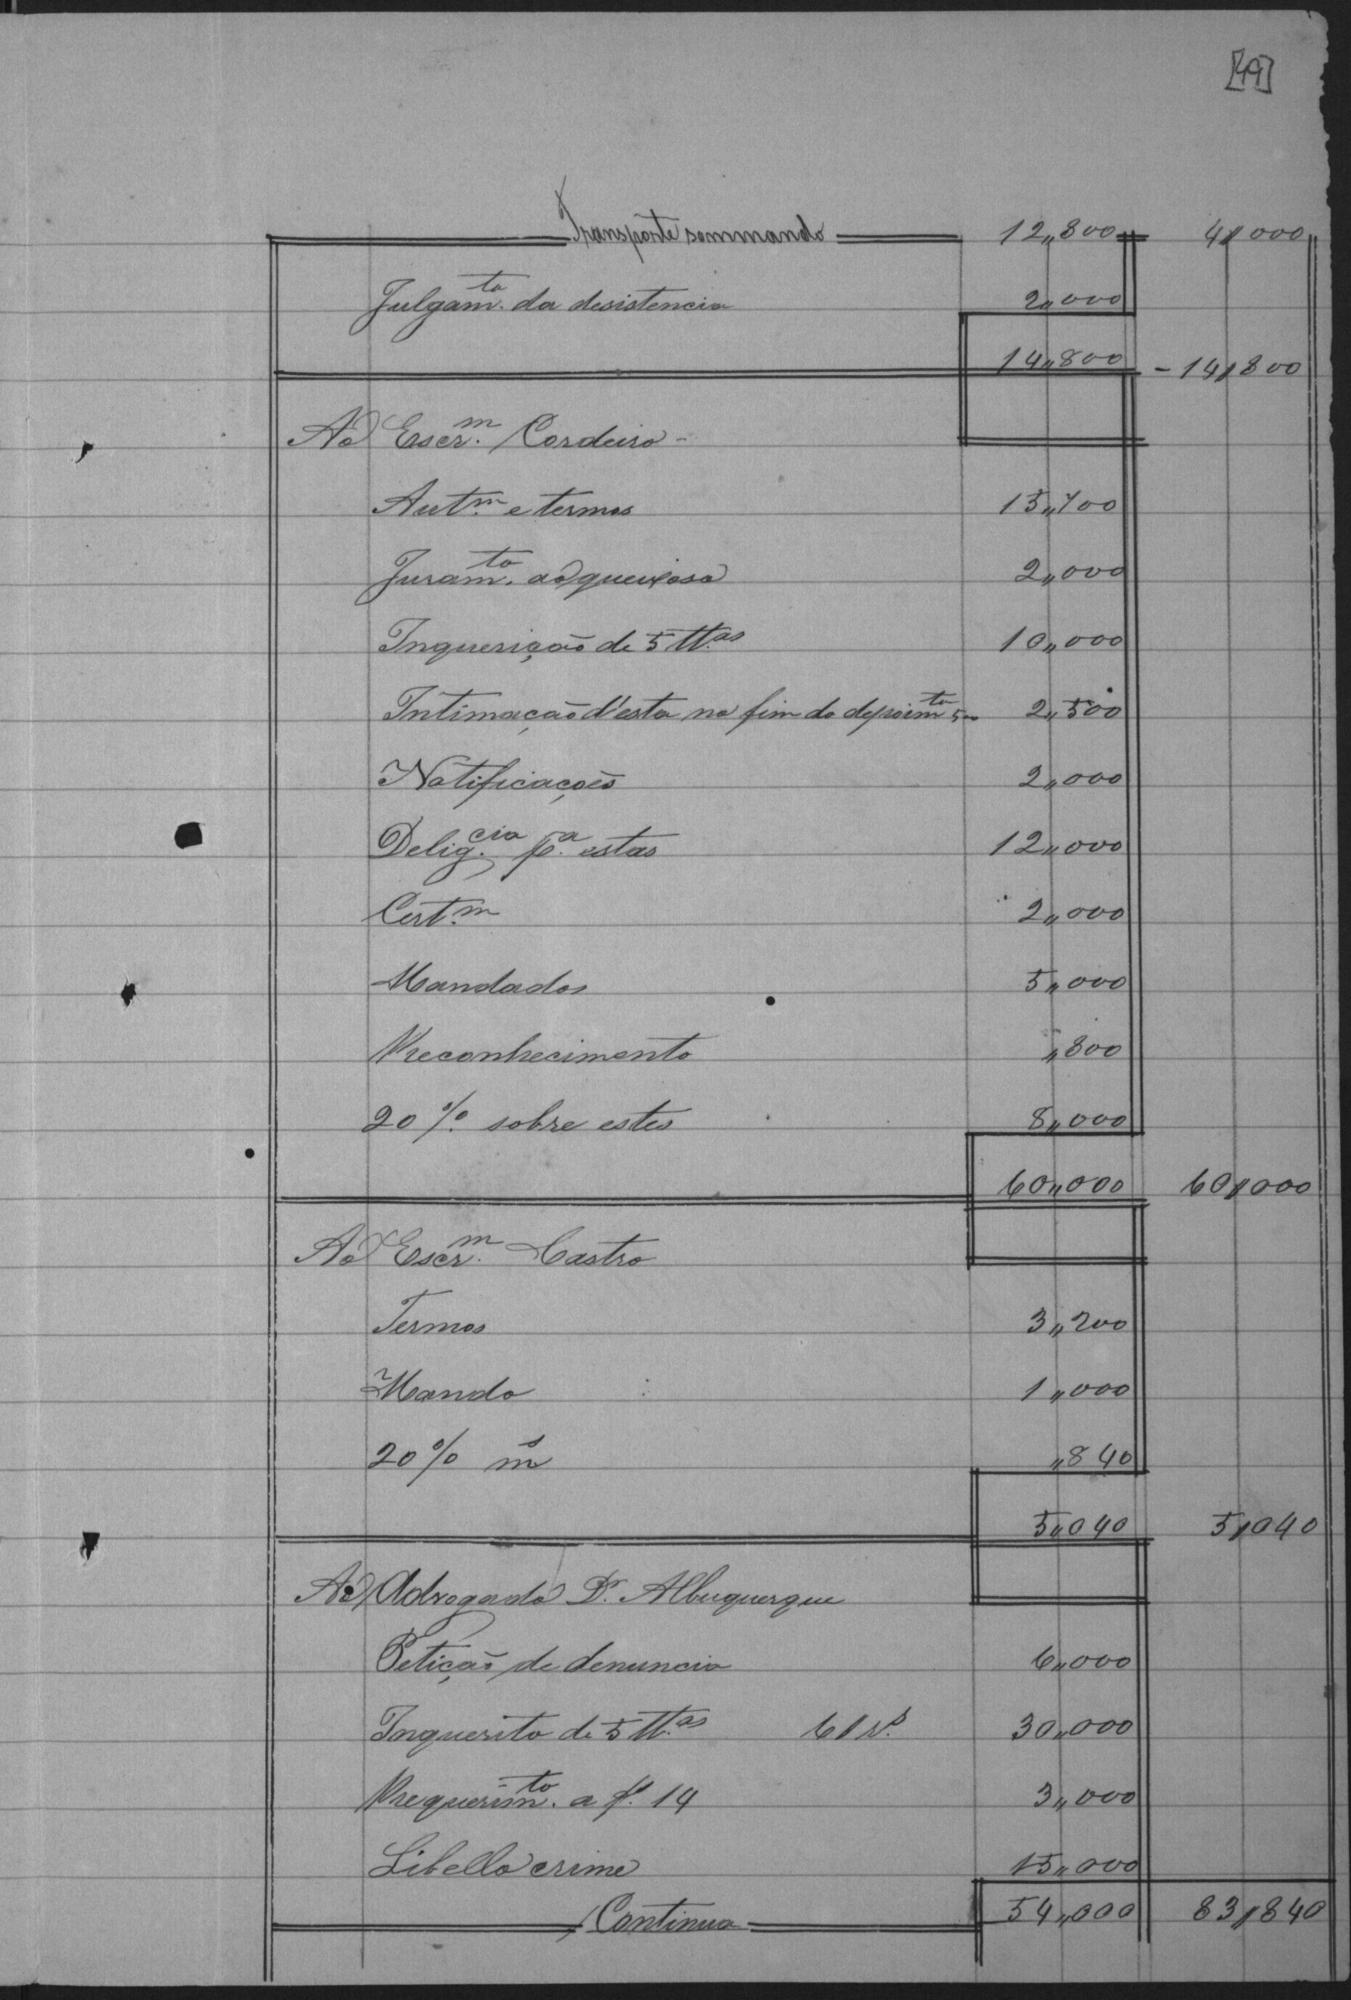 [49]
Transporte sommando 12,,800 4,,000
Julgam.to da desistencia 2,,000
14,,800 - 14,,800
Ao Escr.m Cordeiro -
Aut.m e termos 15,,700
Juram.to ao queixoso 2,,000
Inquerição de 5 tt.as 10,,000
Intimação d'esta no fim do depoim.to 5- 2,,500
Notificações 2,,000
Delig.cia p.a estas 12,,000
Cert.m 2,,000
Mandados 5,,000
Reconhecimento ,,800
20 %. sobre estes 8,,000
60,,000 60,,000
Ao Escr.m Castro
Termos 3,,200
Mando 1,,000
20 % ms ,,840
5,,040 5,,040
Ao Advogado Dr. Albuquerque
Petição de denuncia 6,,000
Inquerito de 5 tt.as 30,,000
Requerim.to a f. 14 3,,000
Libello crime 15,,000
Continua 54,,000 83,,840